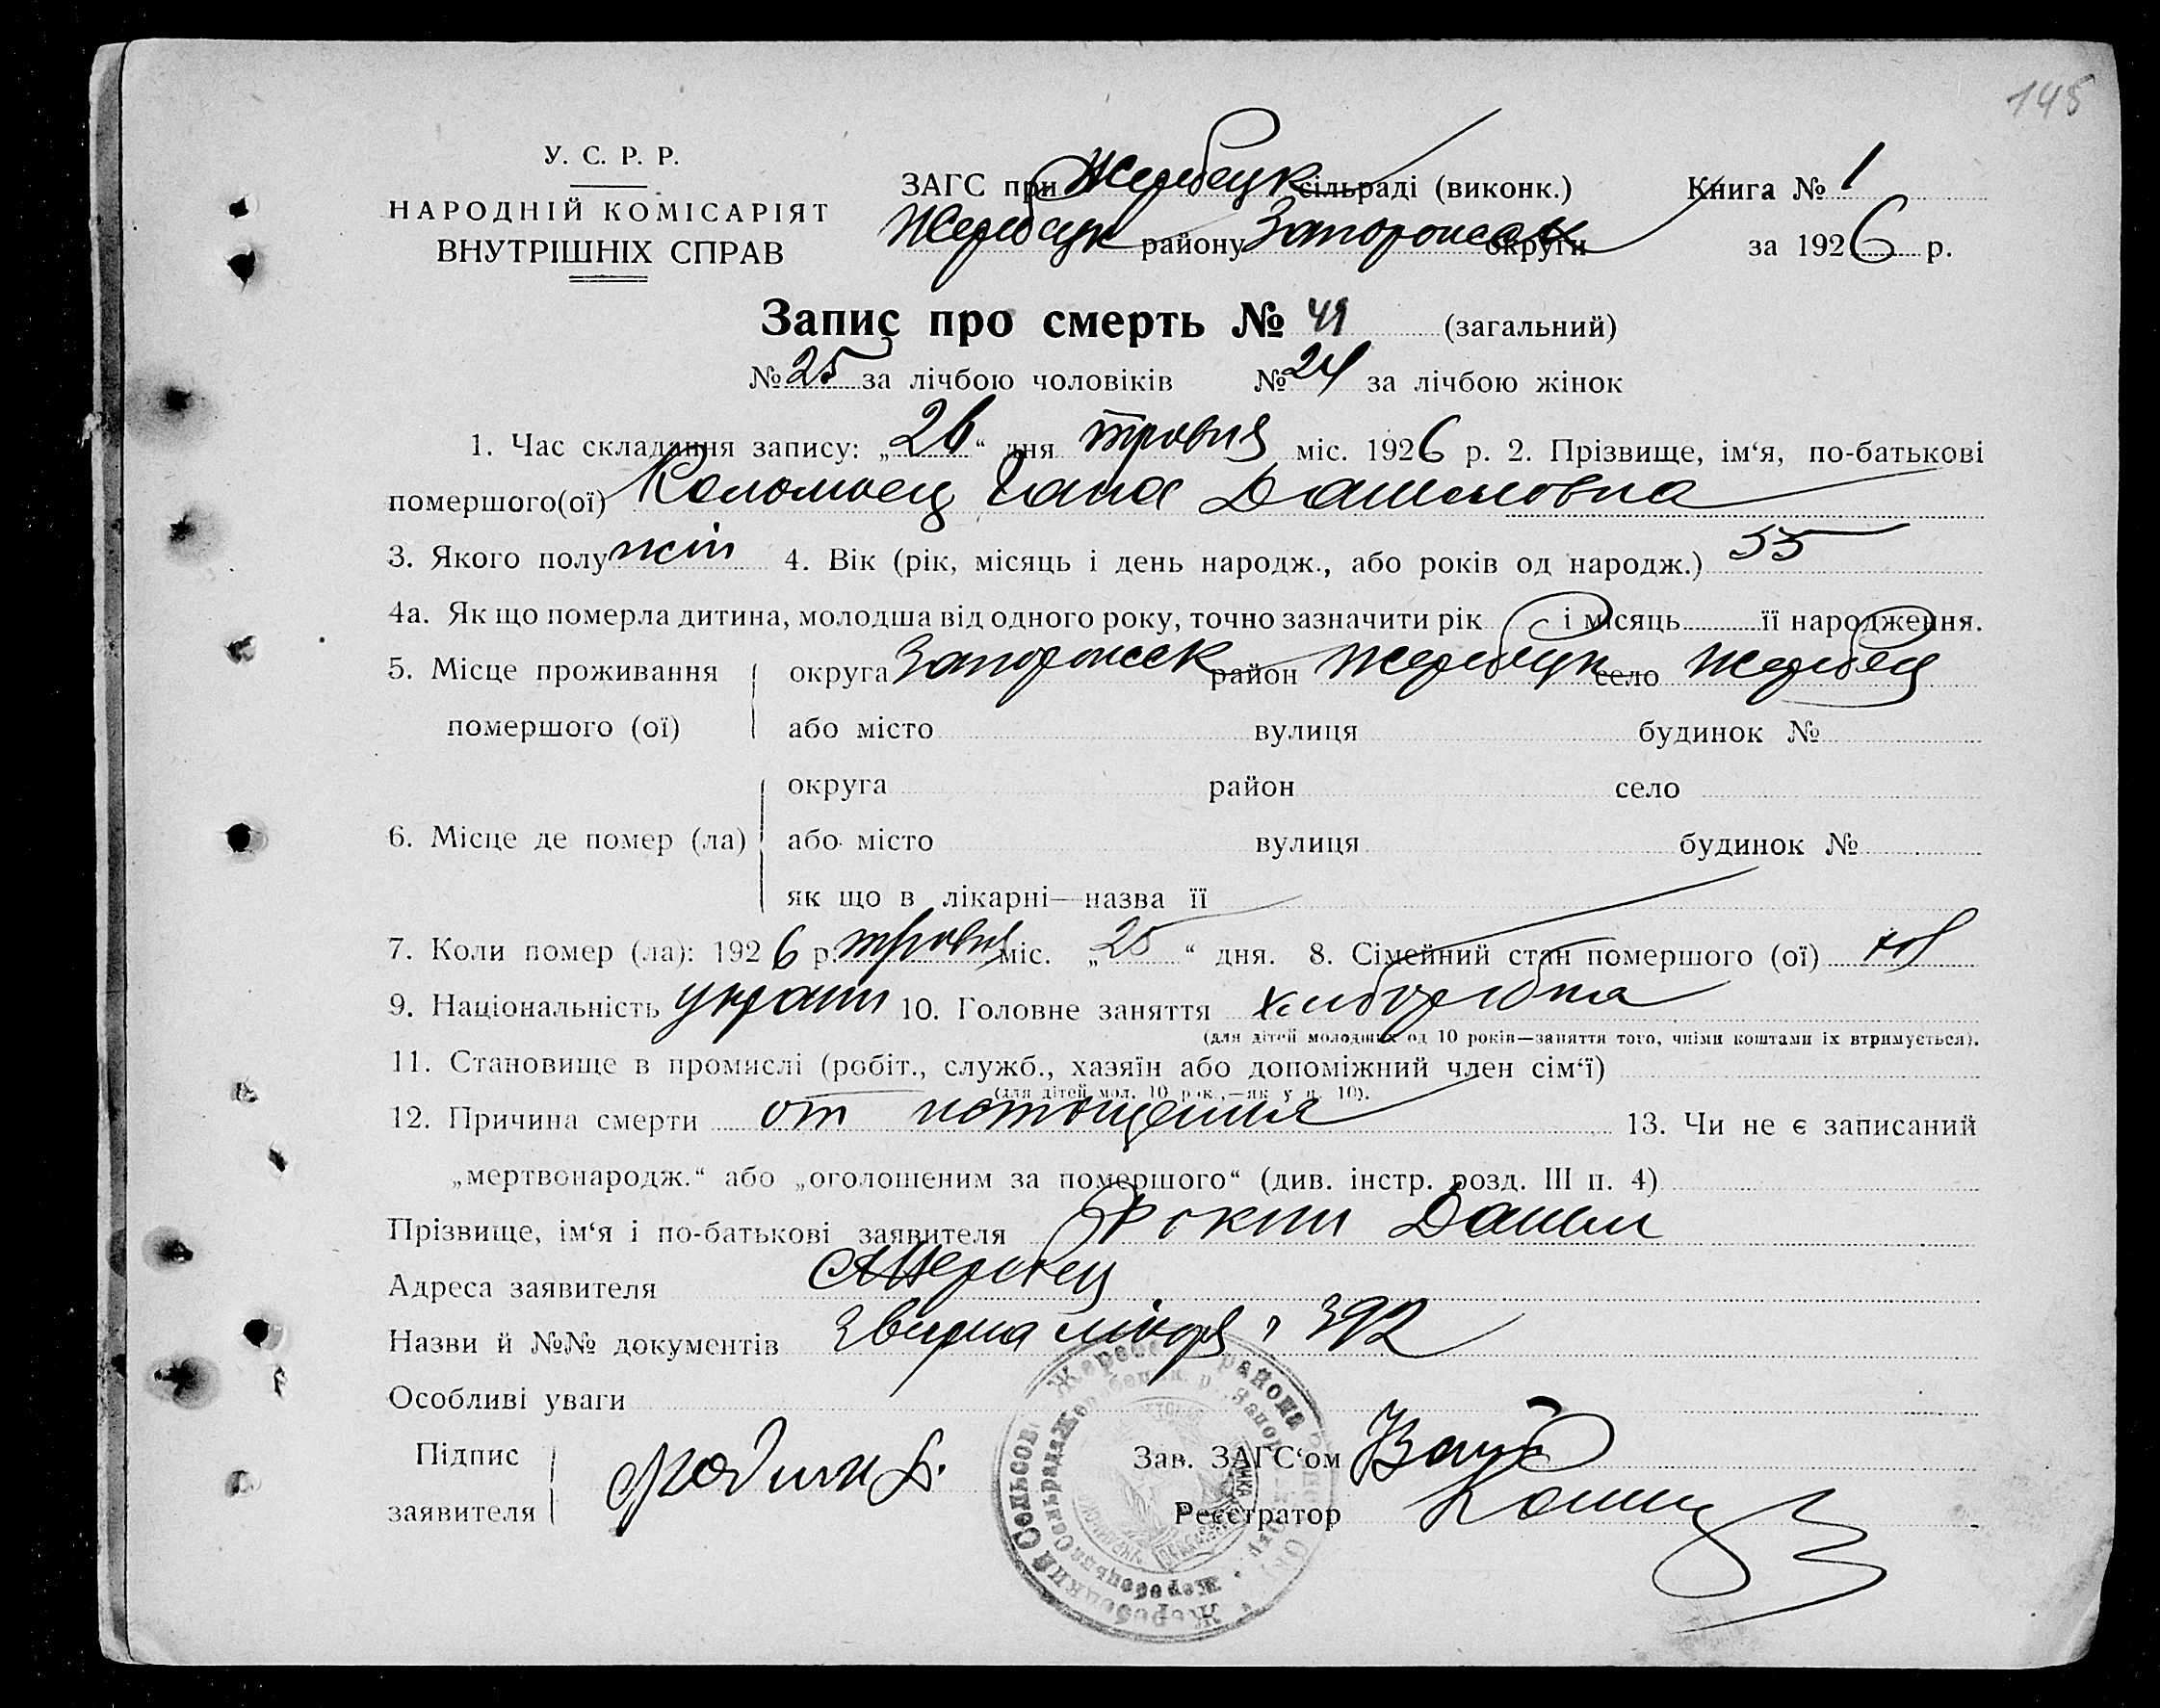 148
У. С. Р. Р.
НАРОДНІЙ КОМІСАРІЯТ
ВНУТРІШНІХ СПРАВ
ЗАГС при Жеребецк сільраді (виконк.) Книга № 1
Жеребецк району Запорожск округи за 1926 р.
Запис про смерть № 49 (загальний)
№ 25 за лічбою чоловіків № 24 за лічбою жінок
1. Час складання запису: „26“ дня травня міс. 1926 р. 2. Прізвище, ім‘я, по-батькові
помершого(ої) Коломоец Гана
3. Якого полу жін 4. Вік (рік, місяць і день народж., або років од народж.) 55
4а. Як що померла дитина, молодша від одного року, точно зазначити рік і місяць її народження.
5. Місце проживання округа Запорожск район Жеребецк село Жеребец
помершого (ої) або місто вулиця будинок №
округа район село
6. Місце де помер (ла) або місто вулиця будинок №
як що в лікарні—назва її
7. Коли помер (ла): 1926 р. травня міс. „25“ дня. 8. Сімейний стан помершого (ої)
9. Національність украин 10. Головне заняття
(для дітей молодших од 10 років—заняття того, чиїми коштами їх втримується).
11. Становище в промислі (робіт., служб., хазяїн або допоміжний член сім‘ї)
(для дітей мол. 10 рок.,—як у п. 10).
12. Причина смерти от истощения 13. Чи не є записаний
„мертвонародж.“ або „оголошеним за помершого“ (див. інстр. розд. III п. 4)
Прізвище, ім‘я і по-батькові заявителя Данил
Адреса заявителя Жеребец
Назви й №№ документів 392
Особливі уваги
Підпис Зав. ЗАГС‘ом
заявителя Реєстратор